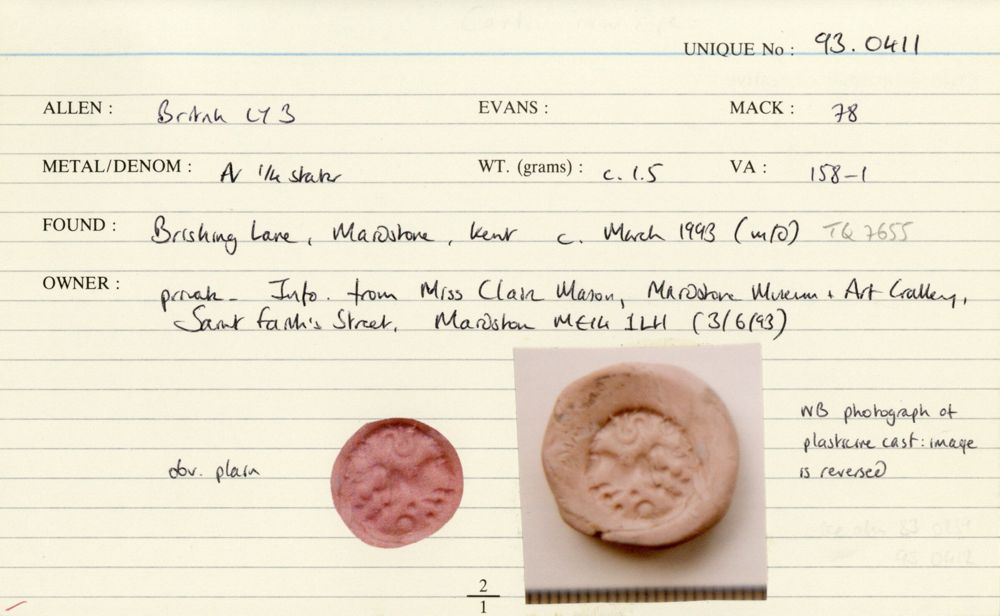 UNIQUE No : 93.0411
ALLEN : British LY 3 EVANS : MACK : 78
METAL/DENOM : AV 1/4 stater WT. (grams) : c. 1.5 VA : 158-1
FOUND : Brishing Lane, Maidstone, Kent c. March 1993 (m/d) TQ 7655
OWNER : private - Info. from Miss Clair Mason, Maidstone Museum + Art Gallery,
Saint Faith's Street, Maidstone ME14 1LH (3/6/93)
NB photograph of
plasticine cast: image
is reversed
obv. plain
93.0412
2
1